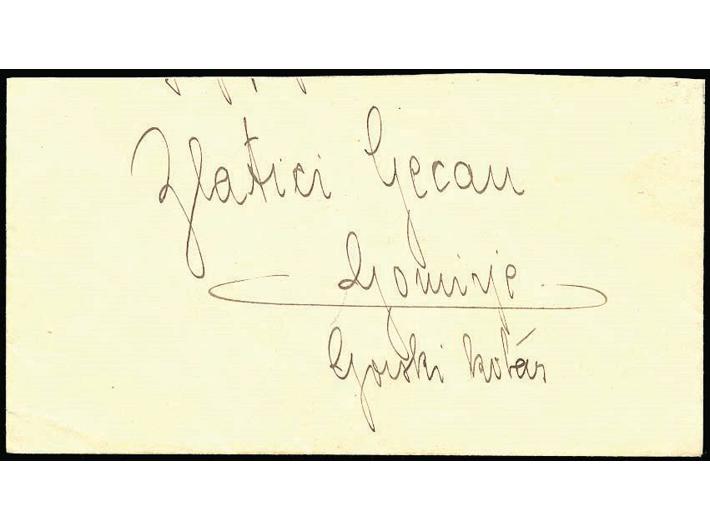 Zlatici Gecan
Gomirje
Gorski kotár